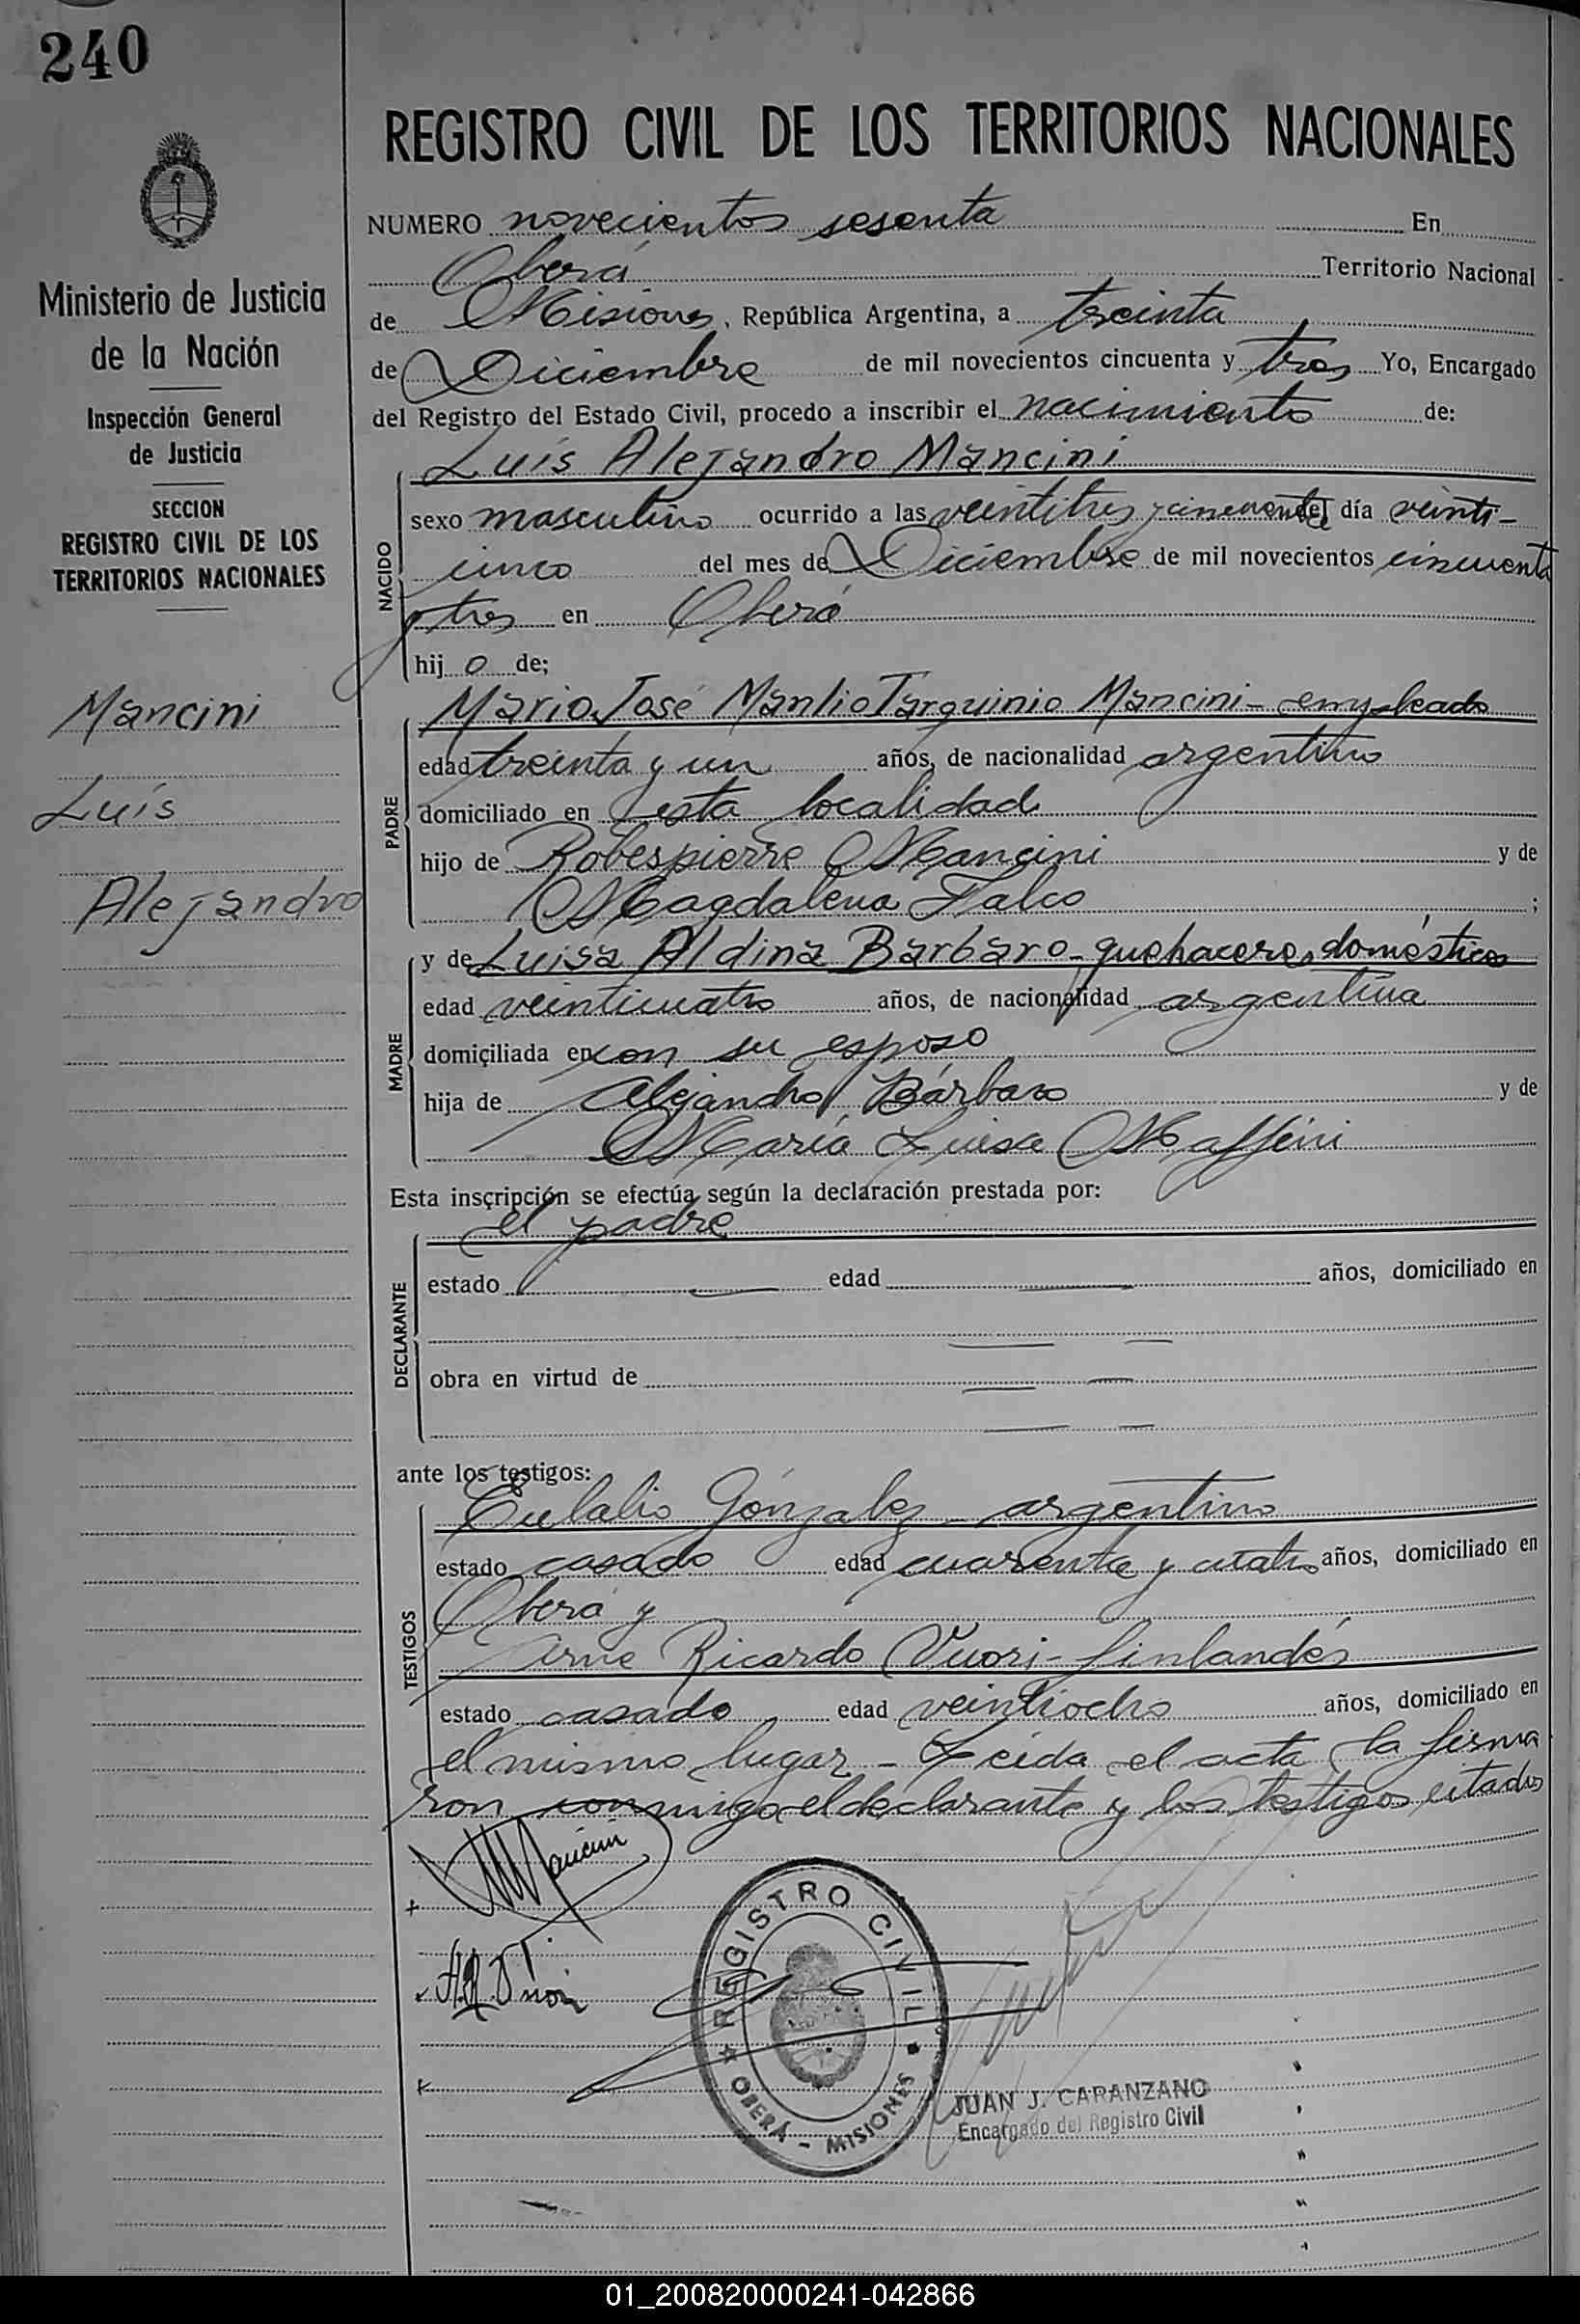 240
REGISTRO CIVIL DE LOS TERRITORIOS NACIONALES
Ministerio de Justicia
de la Nación
Inspección General
de Justicia
SECCION
REGISTRO CIVIL DE LOS
TERRITORIOS NACIONALES
Mancini
Luís
Alejandro
NUMERO novecientos sesenta En
Oberá Territorio Nacional
de Misiones, República Argentina, a treinta
de Diciembre de mil novecientos cincuenta y tres Yo, Encargado
del Registro del Estado Civil, procedo a inscribir el nacimiento de:
NACIDO
Luís Alejandro Mancini
sexo masculino ocurrido a las veintitres y cincuenta del día veinti-
cinco del mes de Diciembre de mil novecientos cincuenta
y tres en Oberá
hij o de;
PADRE
Mario José Manlio Tarquinio Mancini - empleado
edad treinta y un años, de nacionalidad argentino
domiciliado en esta localidad
hijo de Robespierre Mancini y de
Magdalena Falco ;
MADRE
y de Luisa Aldina Barbaro - quehaceres domésticos
edad veinticuatro años, de nacionalidad argentina
domiciliada en con su esposo
hija de Alejandro Bárbaro y de
María Luisa Maffini
Esta inscripción se efectúa según la declaración prestada por:
DECLARANTE
el padre
estado — edad — años, domiciliado en
— —
obra en virtud de — —
— —
ante los testigos:
TESTIGOS
Eulalio Gonzalez - argentino
estado casado edad cuarenta y cuatro años, domiciliado en
Oberá y
Arne Ricardo Vuori - finlandés
estado casado edad veintiocho años, domiciliado en
el mismo lugar - Leída el acta la firma
ron conmigo el declarante y los testigos citados
Mancini
REGISTRO CIVIL
OBERÁ - MISIONES
JUAN J. CARANZANO
Encargado del Registro Civil
01_200820000241-042866